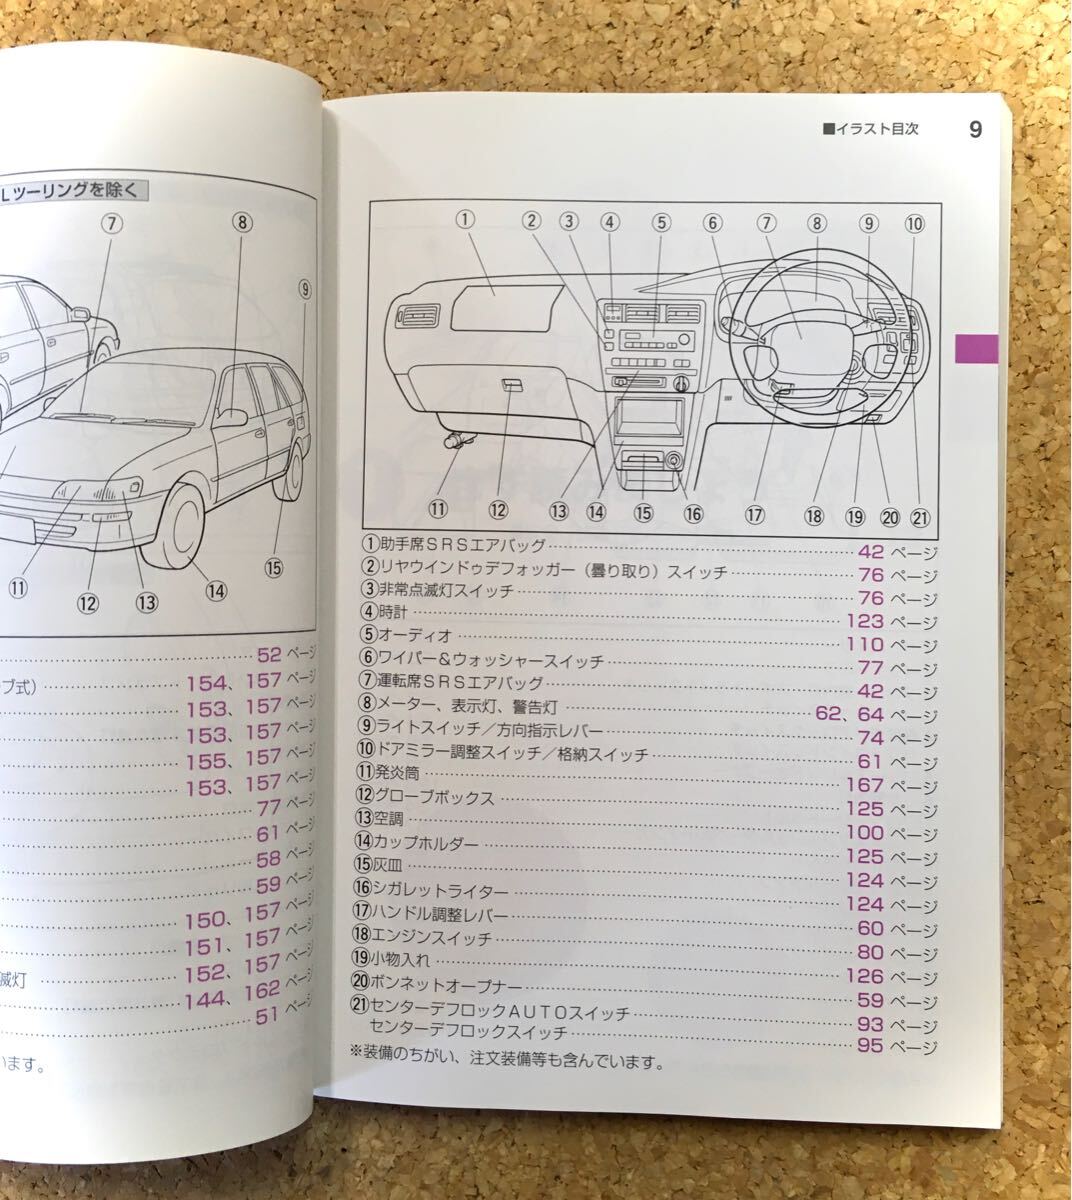 Lツーリングを除く
⑦ ⑧
⑨
⑪ ⑫ ⑬ ⑭ ⑮
52 ページ
ブ式) 154、157 ページ
153、157 ページ
153、157 ページ
155、157 ページ
153、157 ページ
77 ページ
61 ページ
58 ページ
59 ページ
150、157 ページ
151、157 ページ
滅灯 152、157 ページ
144、162 ページ
51 ページ
います。
■イラスト目次 9
① ② ③ ④ ⑤ ⑥ ⑦ ⑧ ⑨ ⑩
⑪ ⑫ ⑬ ⑭ ⑮ ⑯ ⑰ ⑱ ⑲ ⑳ ㉑
①助手席SRSエアバッグ 42 ページ
②リヤウインドゥデフォッガー（曇り取り）スイッチ 76 ページ
③非常点滅灯スイッチ 76 ページ
④時計 123 ページ
⑤オーディオ 110 ページ
⑥ワイパー＆ウォッシャースイッチ 77 ページ
⑦運転席SRSエアバッグ 42 ページ
⑧メーター、表示灯、警告灯 62、64 ページ
⑨ライトスイッチ／方向指示レバー 74 ページ
⑩ドアミラー調整スイッチ／格納スイッチ 61 ページ
⑪発炎筒 167 ページ
⑫グローブボックス 125 ページ
⑬空調 100 ページ
⑭カップホルダー 125 ページ
⑮灰皿 124 ページ
⑯シガレットライター 124 ページ
⑰ハンドル調整レバー 60 ページ
⑱エンジンスイッチ 80 ページ
⑲小物入れ 126 ページ
⑳ボンネットオープナー 59 ページ
㉑センターデフロックAUTOスイッチ 93 ページ
センターデフロックスイッチ 95 ページ
※装備のちがい、注文装備等も含んでいます。